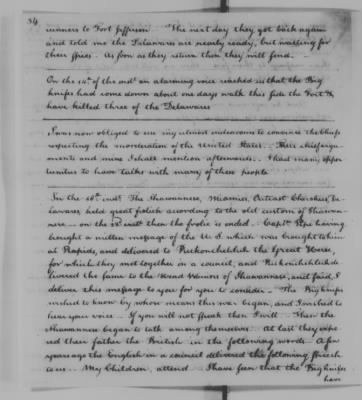 34
runners to Fort Jefferson The next day they got back again
and told me the Delawares are nearly ready, but waiting for
their Spies. As soon as they return then they will send.
On the 14th. of the ond. an alarming voice reached us that the Big
knifes had come down about one days walk this side the Fort &
have killed three of the Delawares
I was now obliged to use my utmost endeavours to convince the Chiefs
respecting the moderation of the United States. Their chief argu-
ments and mine I shall mention afterwards. I had many oppor
tunities to have talks with many of these people
In the 18th. inst. The Shawannese, Miamies, Outcast Cherokees, De-
lawares, held great frolick according to the old custom of Shawan-
nese on the inst. then the frolic is ended. Captn. Pipe having
brought a written message of the U. S. which was brought to him
at Rapids, and delivered to Puckonchelukh the Great Hero,
for which they met together in a council, and Puckonchelukh de
livered the same to the Head Warriors of Shawannese, and said, I
deliver this message to you for you to consider. The Big knifes
wished to know by whose means this war began, and I wished to
hear your voice. If you will not speak then I will. Then the
Shawannese began to talk among themselves. At last they expo
sed their father the British in the following words. A few
years ago the English in a council delivered the following Speech
to us. My Children, attend. I have seen that the Big knifes
have